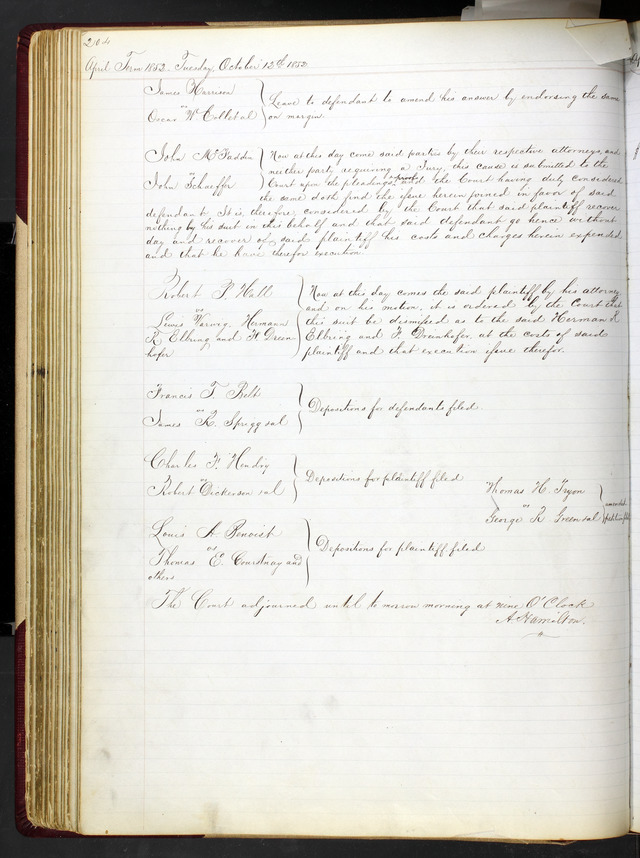 204
April Term 1852. Tuesday, October 12th 1852
James Harrison
vs
Oscar W. Collet al
Leave to defendant to amend his answer by endorsing the same
on margin.
John McFaddin
vs
John Schaeffer
Now at this day come said parties by their respective attorneys, and
neither party requiring a Jury this cause is submitted to the
Court upon the pleadings & proof and the Court having duly considered
the same doth find the issue herein joined in favor of said
defendant. It is, therefore, considered by the Court that said plaintiff recover
nothing by his suit in this behalf and that said defendant go hence without
day and recover of said plaintiff his costs and charges herein expended
and that he have therefor execution.
Robert P. Hall
vs
Lewis Herman
R Elbring and H Dreen
hofer
Now at this day comes the said plaintiff by his attorney
and on his motion, it is ordered by the Court that
this suit be dismissed as to the said Herman R
Elbring and H Dreenhofer, at the costs of said
plaintiff and that execution issue therefor.
Francis T. Belt
vs
James R. Sprigg et al
Depositions for defendants filed.
Charles F. Hendry
vs
Robert Dickerson et al
Depositions for plaintiff filed
Thomas H. Tryon
vs
George R Green et al
amended
petition filed
Louis A Benoist
vs
Thomas E. Courtnay and
others
Depositions for plaintiff filed
The Court adjourned until to morrow morning at nine O'Clock
A Hamilton.